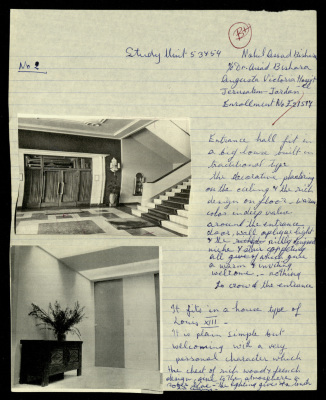 B+
Study Unit 53454
No 2
Augusta Victoria Hospt
Jerusalem - Jordan
Enrollment No
Entrance hall fit in
a big house built in
traditional type
the decorative plastering
on the ceiling & the rich
design on floor - warm
color in deep value
around the entrance
door, wall
& the
niche & other
all gives
a warm & inviting
welcome - nothing
to crowd the entrance
It fits in a house type of
Louis XIII -
It is plain simple but
welcoming with a very
personal character which
the chest of rich wood & french
design, give to the atmosphere a